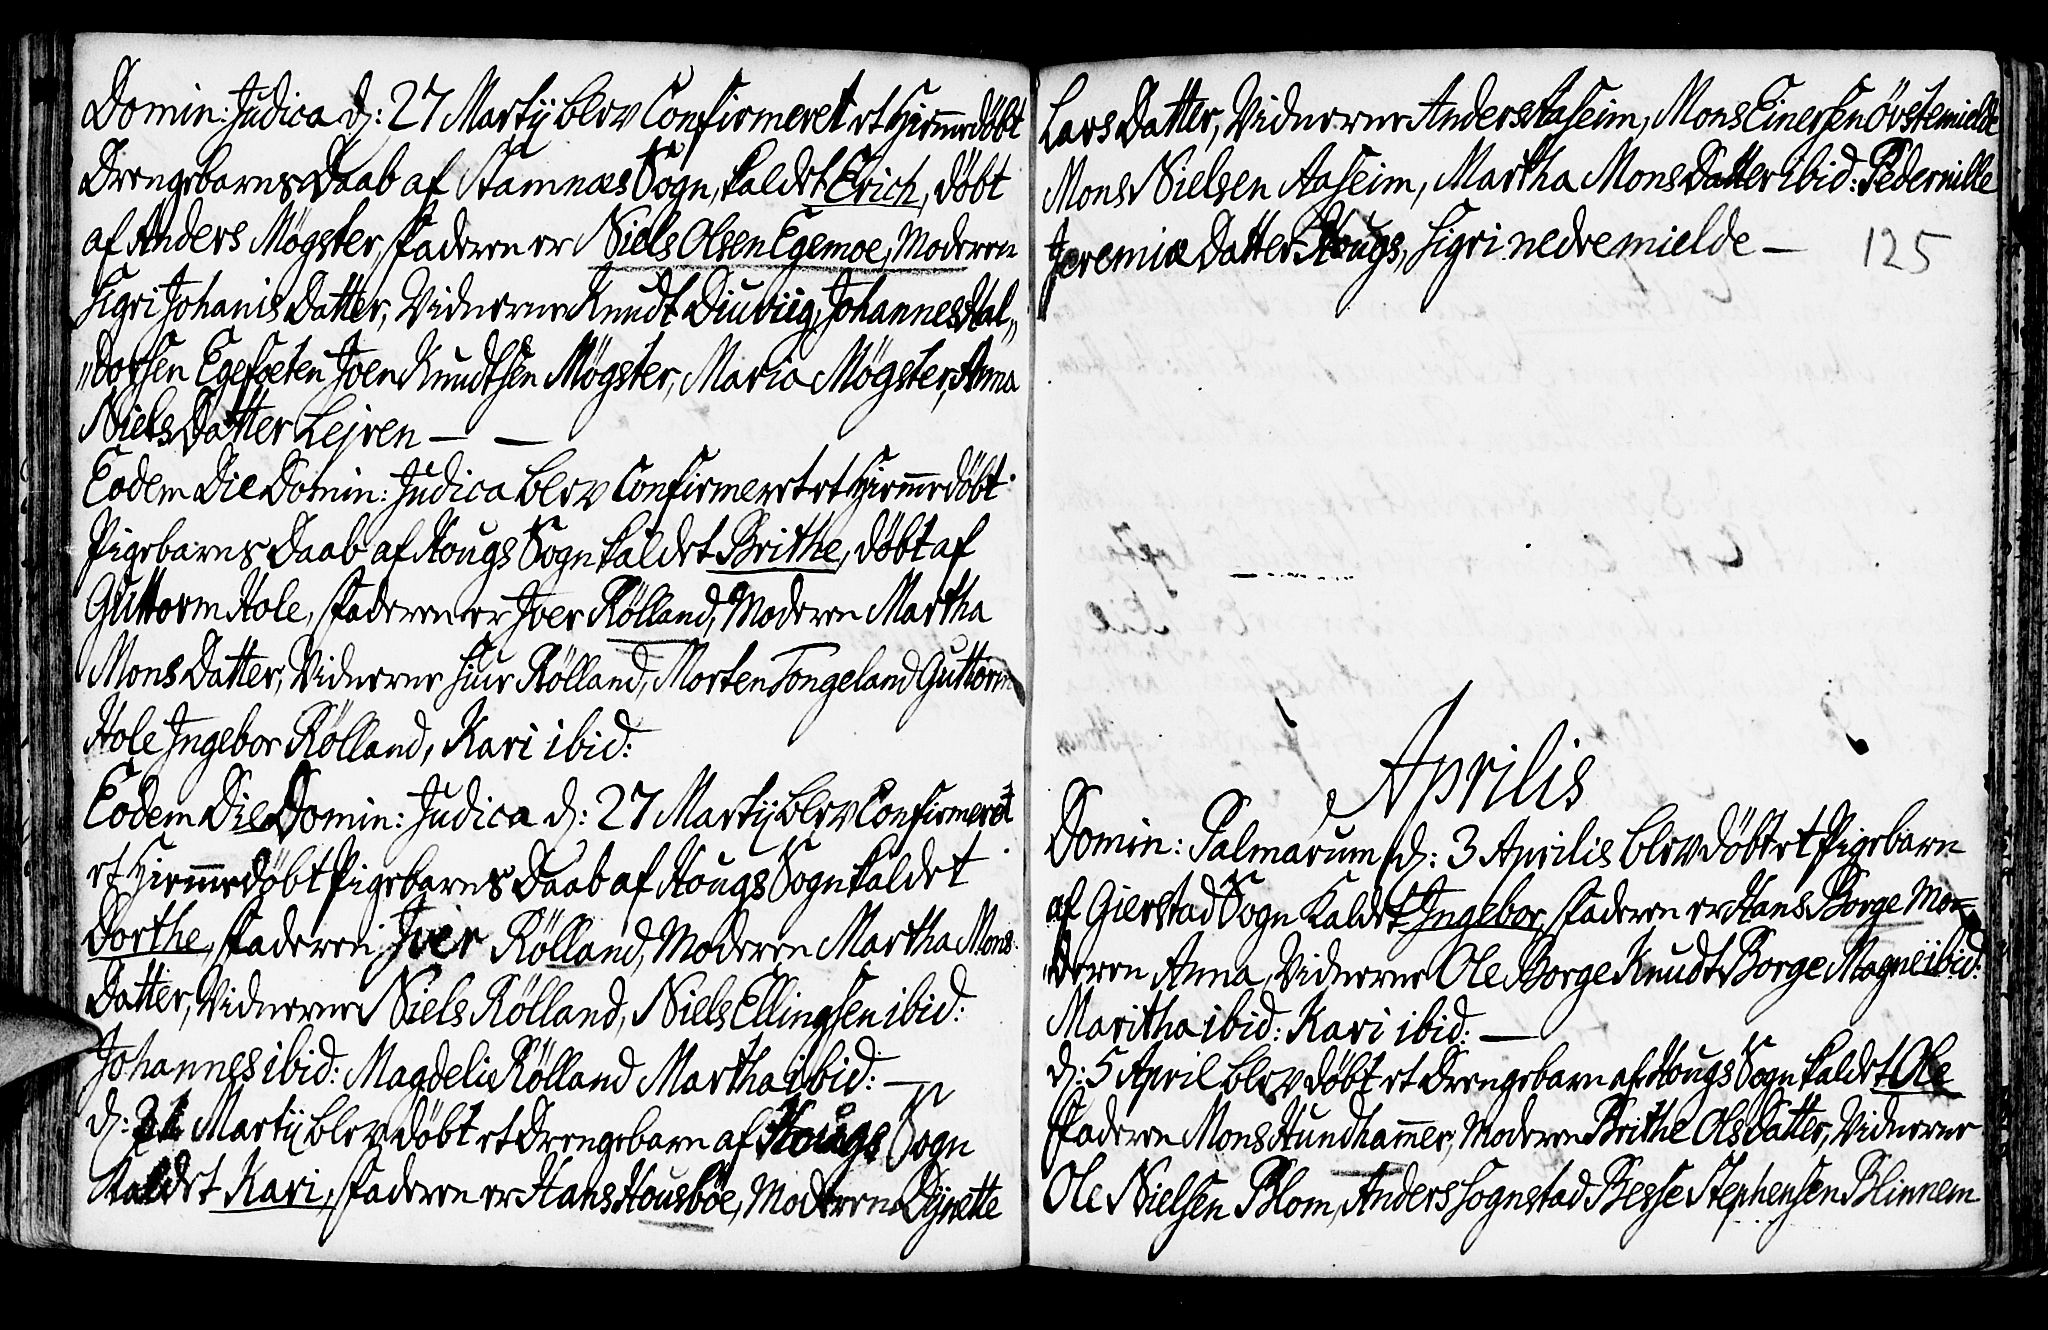 Domin: Judica d: 27 Martij blev Confirmeret et Hiemmedøbt
Drengebarns Daab af Stamnæs Sogn, kaldet Erich, døbt
af Anders Møgster, Faderen er Niels Olsen Egemoe, Moderen
Sigri Johanis Datter, Vidnerne Knudt Diuviig, Johannes Hal„
„Dorsen Egefoeten Joen Knudtsen Møgster, Maria Møgster, Anna
Niels Datter Lejren — —
Eodem Die Domin: Judica blev Confirmeret et Hiemmedøbt
Pigebarns Daab af Hougs Sogn kaldet Brithe, døbt af
Guttorm Hole, Faderen er Iver Rølland, Moderen Martha
Mons Datter, Vidnerne Siur Rølland, Morten Tongeland Guttorm
Hole Ingebor Rølland, Kari ibid:
Eodem Die Domin: Judica d: 27 Martij blev Confirmeret
et Hiemmedøbt Pigebarns Daab af Hougs Sogn kaldet
Dorthe, Faderen Iver Rølland, Moderen Martha Mons
Datter, Vidnerne Niels Rølland, Niels Ellingsen ibid:
Johannes ibid: Magdeli Rølland Martha ibid: —
d: Martij blev døbt et Drengebarn af Hougs Sogn
Kaldet Kari, Faderen er Hans Housbøe, Moderen Dÿrette
Lars Datter, Vidnerne Anders Aaseim, Mons Einersen øvstemielde
Mons Nielsen Aaseim, Martha Mons Datter ibid: Pedernille
Jeremiæ Datter Hougs, Sigri nedre mielde —
125
Aprilis
Domin: Palmarum d: 3 Aprilis blev døbt et Pigebarn
af Gierstad Sogn Kaldet Ingebor, Faderen er Hans Borge Mo„
„deren Anna, Vidnerne Ole Borge Knudt Borge Magne ibid:
Maritha ibid: Kari ibid: —
d: 5 April blev døbt et Drengebarn af Hougs Sogn kaldet Ole
Faderen Mons Hundhammer, Moderen Brithe Ols Datter, Vidnerne
Ole Nielsen Blom, Anders Sognstad Besse Stephensen Blinnem